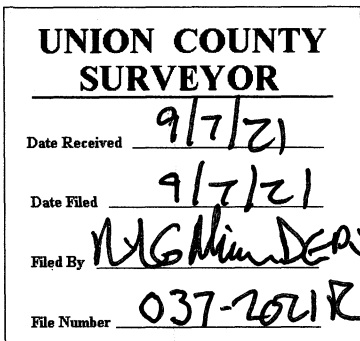 UNION COUNTY
SURVEYOR
Date Received 9/7/21
Date Filed 9/7/21
Filed By
File Number 037-2021R